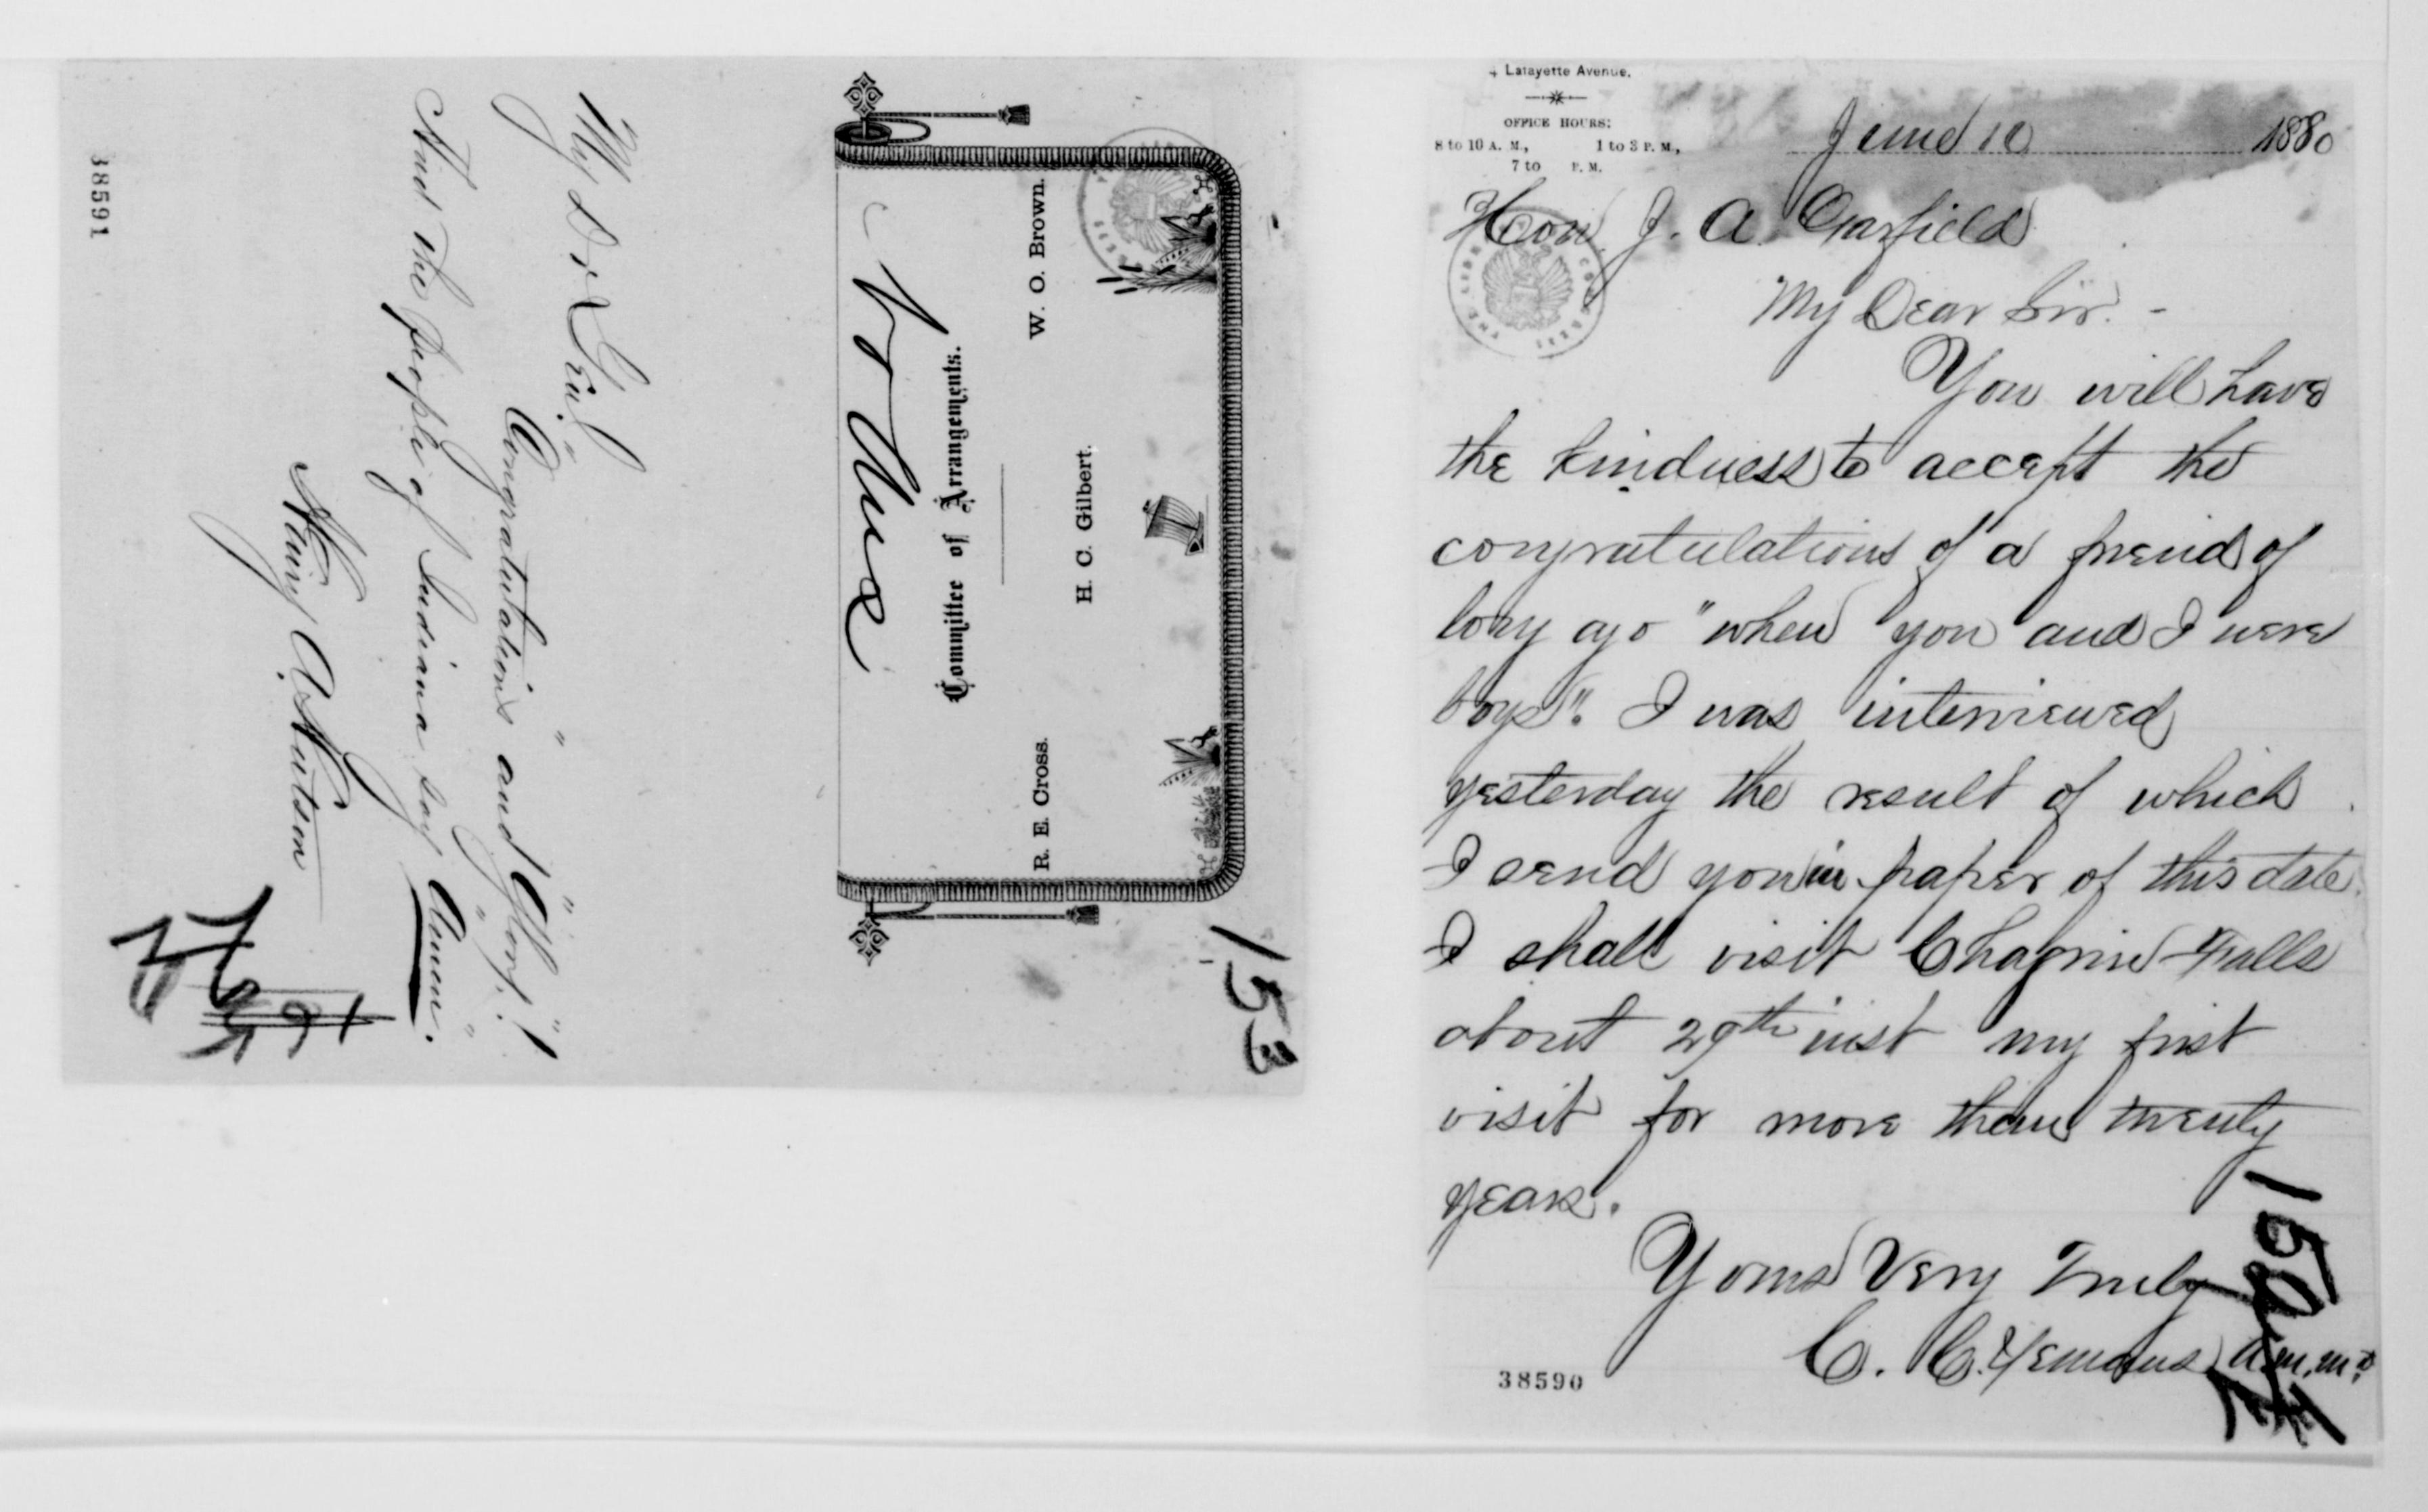 My Dr Genl,
"Congratulations" and "Glory"!
And the people of Indiana say "Amen".
Watson
38591
R. E. Cross.
H. C. Gilbert.
W. O. Brown.
Committee of Arrangements.
153
Lafayette Avenue,
OFFICE HOURS:
8 to 10 A. M., 1 to 3 P. M.,
7 to P. M.
June 10 1880
Hon J. A. Garfield
My Dear Sir. -
You will have
the kindness to accept the
congratulations of a friend of
long ago "when you and I were
boys". I was interviewed
yesterday the result of which
I send you in paper of this date.
I shall visit Chagrin Falls
about 29th inst my first
visit for more than twenty
years.
Yours Very Truly
C. C. Yemans, A.M. M.D.
38590